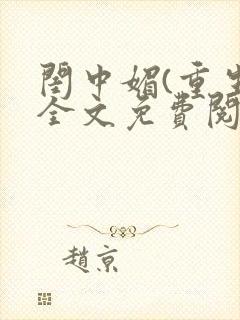 閨中媚(重生
全文免費閱
趙京